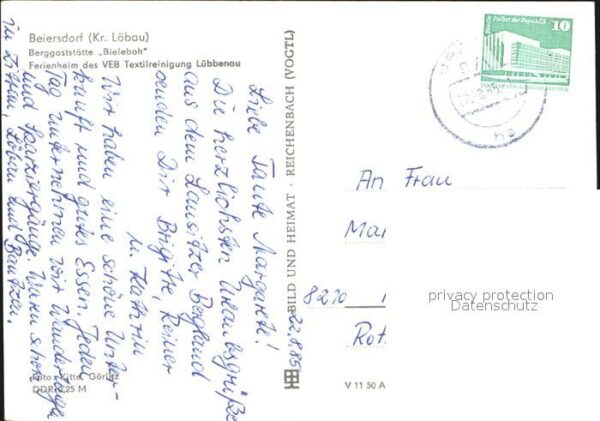 Beiersdorf (Kr. Löbau)
Berggaststätte „Bieleboh"
Ferienheim des VEB Textilreinigung Lübbenau
Liebe Tante Margarete!
Die herzlichsten Urlaubsgrüße
aus dem Lausitzer Bergland
senden Dir Brigitte, Reiner
u. Kathrin
Wir haben eine schöne Unter-
kunft und gutes Essen. Jeden
Tag unternehmen wir Wanderungen
und Spaziergänge. Waren schon
in Zittau, Löbau und Bautzen.
Foto: Kitte, Görlitz
DDR 0,25 M
BILD UND HEIMAT · REICHENBACH (VOGTL)
22.8.85
V 11 50 A
Berlin, Palast der Republik
10
An Frau
Mar
8210
Rot
privacy protection
Datenschutz